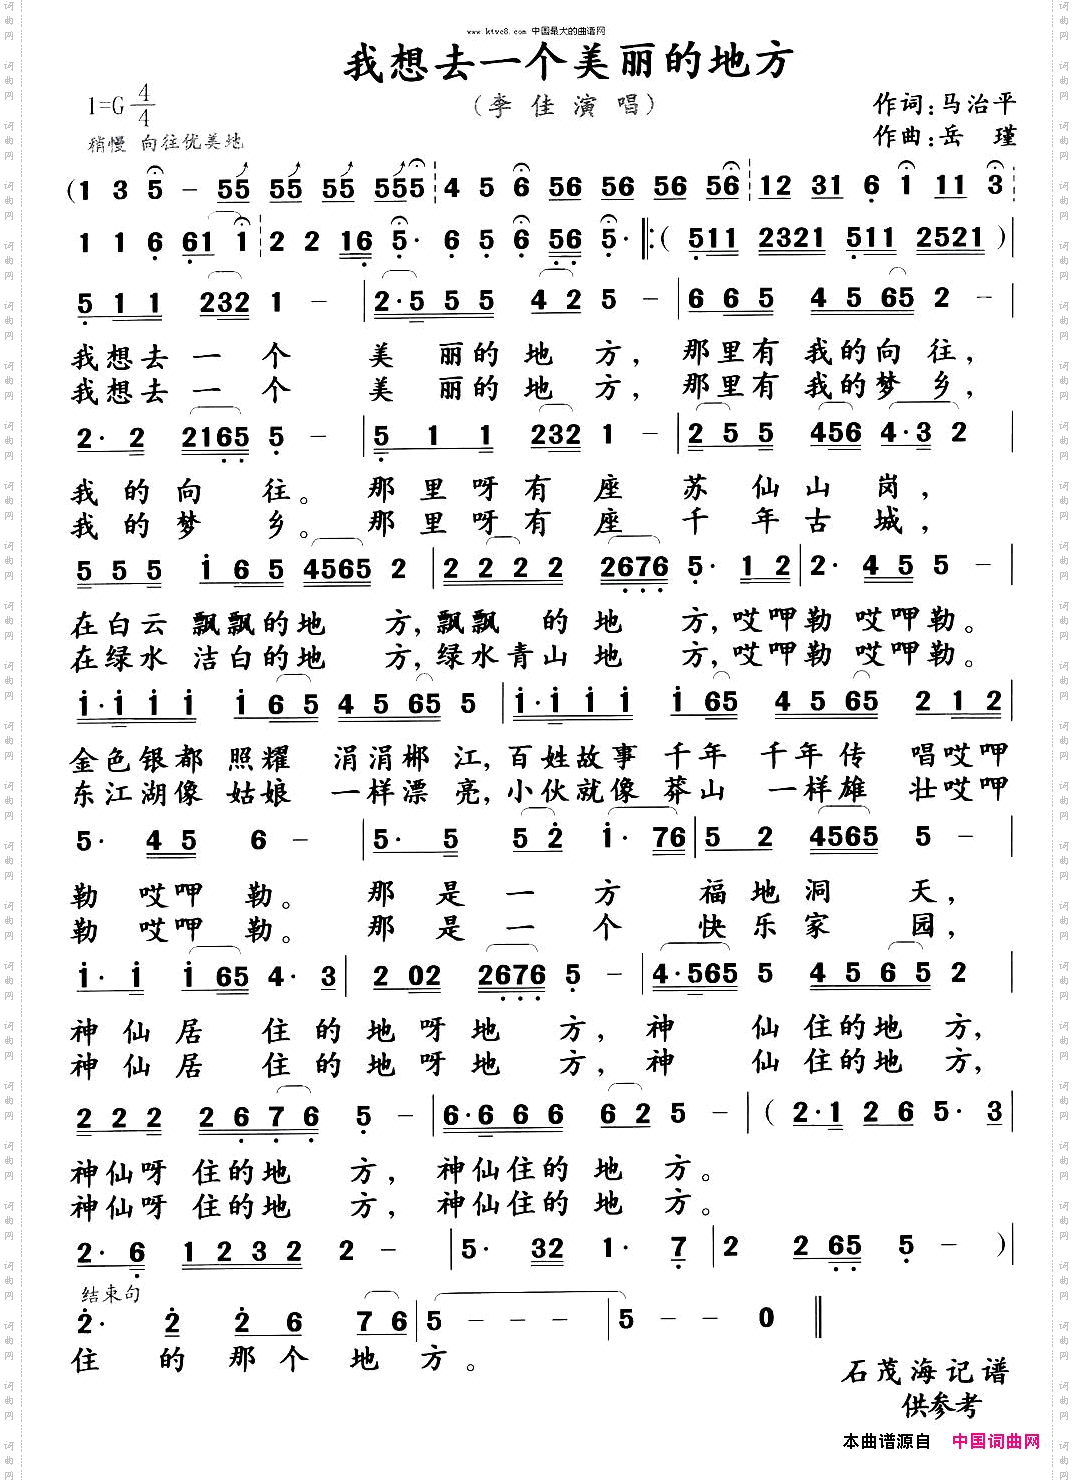 www.ktvc8.com 中国最大的曲谱网
我想去一个美丽的地方
(李佳演唱)
1=G 4/4
作词:马治平
稍慢 向往优美地
作曲:岳 瑾
(1 3 5 - 55 55 55 555 4 5 6 56 56 56 56 12 31 6 1 11 3
1 1 6 61 1 2 2 16 5· 6 5 6 56 5· ‖:( 511 2321 511 2521 )|
5 1 1 232 1 - | 2·5 5 5 4 2 5 - | 6 6 5 4 5 65 2 - |
我想去 一 个 美 丽的 地 方, 那里有 我的向 往,
我想去 一 个 美 丽的 地 方, 那里有 我的梦 乡,
2· 2 2165 5 - | 5 1 1 232 1 - | 2 5 5 456 4·3 2 |
我 的 向 往。 那 里 呀 有 座 苏 仙 山 岗,
我 的 梦 乡。 那 里 呀 有 座 千 年 古 城,
5 5 5 1 6 5 4565 2 | 2 2 2 2 2676 5· 1 2 | 2· 4 5 5 - |
在白云 飘飘的地 方,飘飘 的 地 方,哎呷勒 哎呷勒。
在绿水 洁白的地 方,绿水青山 地 方,哎呷勒 哎呷勒。
1·1 1 1 1 6 5 4 5 65 5 | 1·1 1 1 1 65 4 5 65 2 1 2 |
金色银都 照耀 涓涓郴 江,百姓故事 千年 千年传 唱哎呷
东江湖像 姑娘 一样漂 亮,小伙就像 莽山 一样雄 壮哎呷
5· 4 5 6 - | 5· 5 5 2 1· 76 | 5 2 4565 5 - |
勒 哎呷 勒。 那 是 一 方 福 地 洞 天,
勒 哎呷 勒。 那 是 一 个 快 乐 家 园,
1· 1 1 65 4· 3 | 2 02 2676 5 - | 4·565 5 4 5 6 5 2 |
神 仙 居 住 的 地 呀 地 方, 神 仙 住的地 方,
神 仙 居 住 的 地 呀 地 方, 神 仙 住的地 方,
2 2 2 2 6 7 6 5 - | 6·6 6 6 6 2 5 - | ( 2·1 2 6 5· 3 |
神仙呀 住的地 方, 神仙住的 地 方。
神仙呀 住的地 方, 神仙住的 地 方。
2· 6 1 2 3 2 2 - | 5· 32 1· 7 | 2 2 65 5 - )|
结束句
2· 2 2 6 7 6 | 5 - - - | 5 - - 0 ‖
住 的 那 个 地 方。
石茂海记谱
供参考
本曲谱源自 中国词曲网